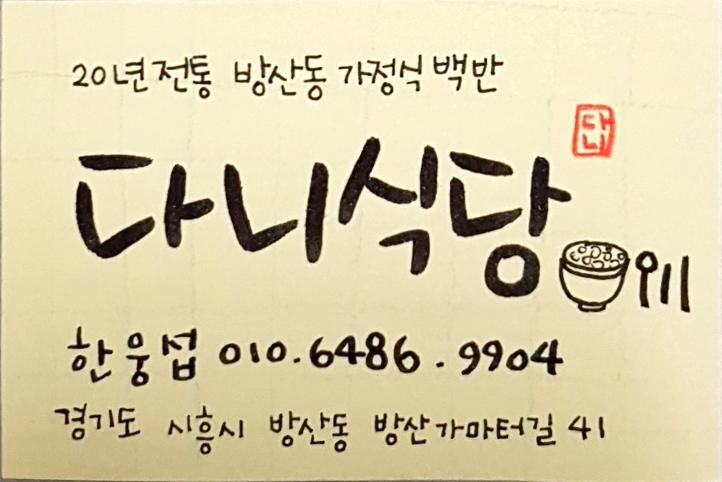 20년전통 방산동 가정식 백반
다니
다니식당
한웅섭 010.6486.9904
경기도 시흥시 방산동 방산가마터길 41